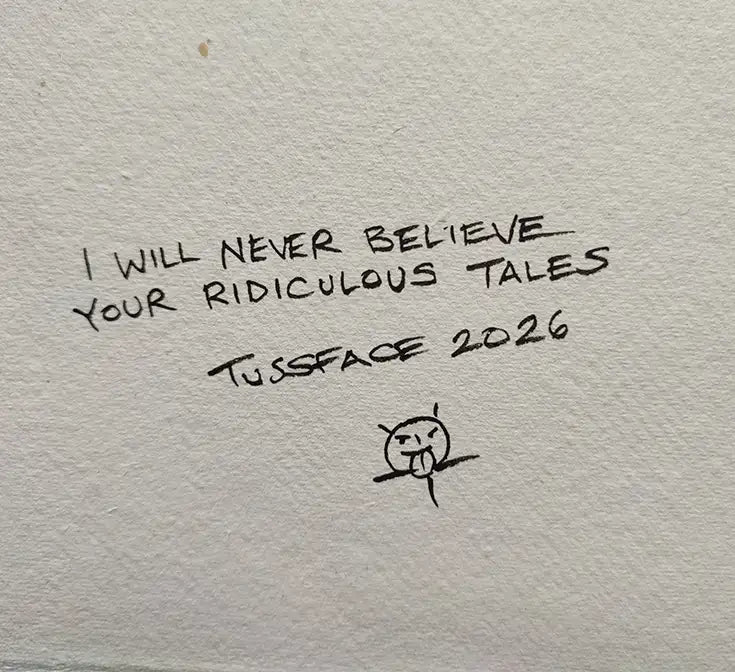 I WILL NEVER BELIEVE
YOUR RIDICULOUS TALES
TUSSFACE 2026